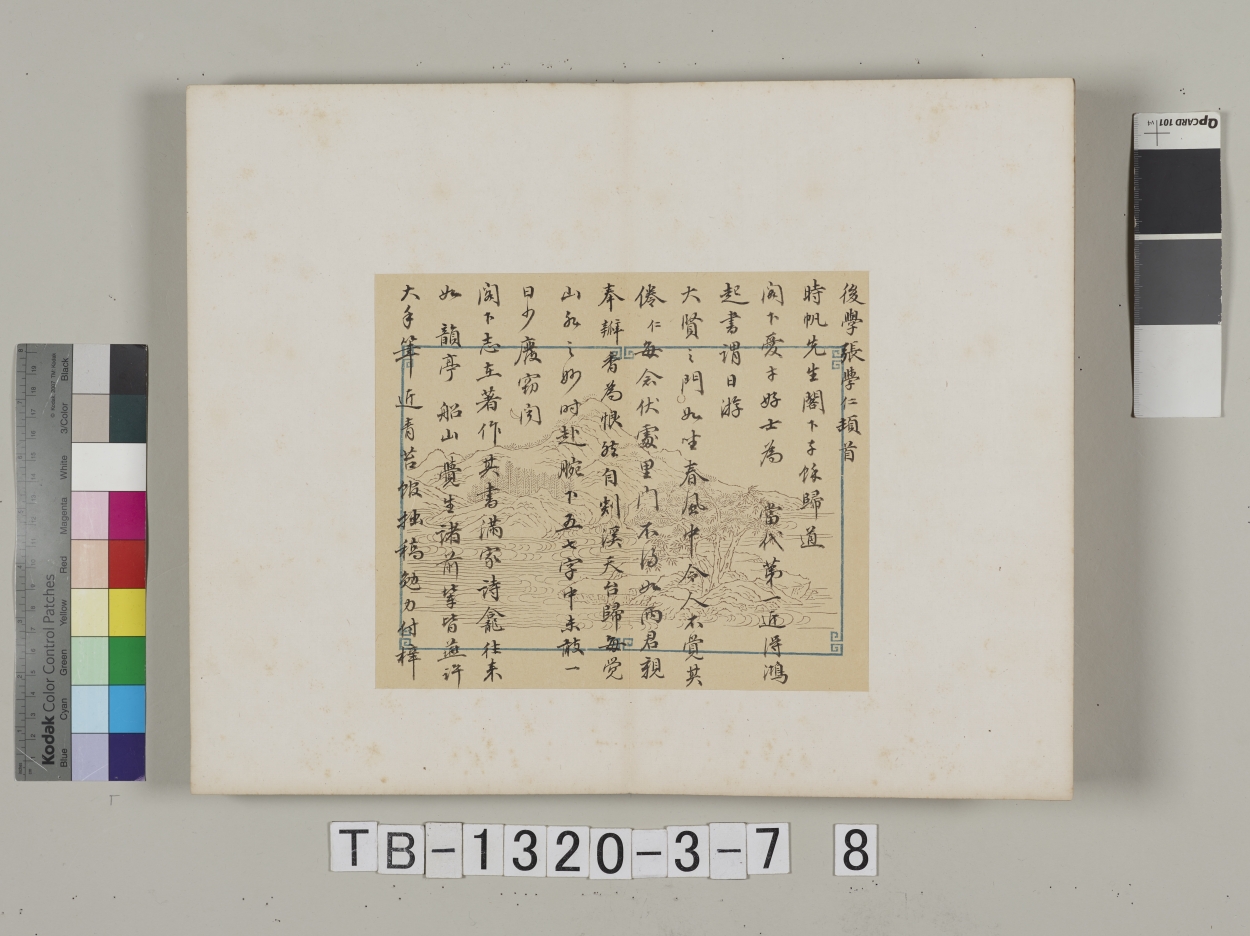 後學張學仁頓首
時帆先生閣下子穌歸道
閣下愛才好士為 當代第一近得鴻
起書謂日游
大賢之門如坐春風中令人不覺其
倦仁每念伏處里门不得如兩君親
奉瓣香為恨然自剡溪天台歸每觉
山水之妙时赴腕下五七字中未敢一
日少廢窃闻
閣下志在著作其書滿家詩龕往来
如 韻亭 船山 覺生諸前輩皆
大手筆 近青苔 拙稿勉力付梓
TB-1320-3-7 8
Kodak Color Control Patches
Blue
Cyan
Green
Yellow
Red
Magenta
White
3/Color
Black
QPCARD 101